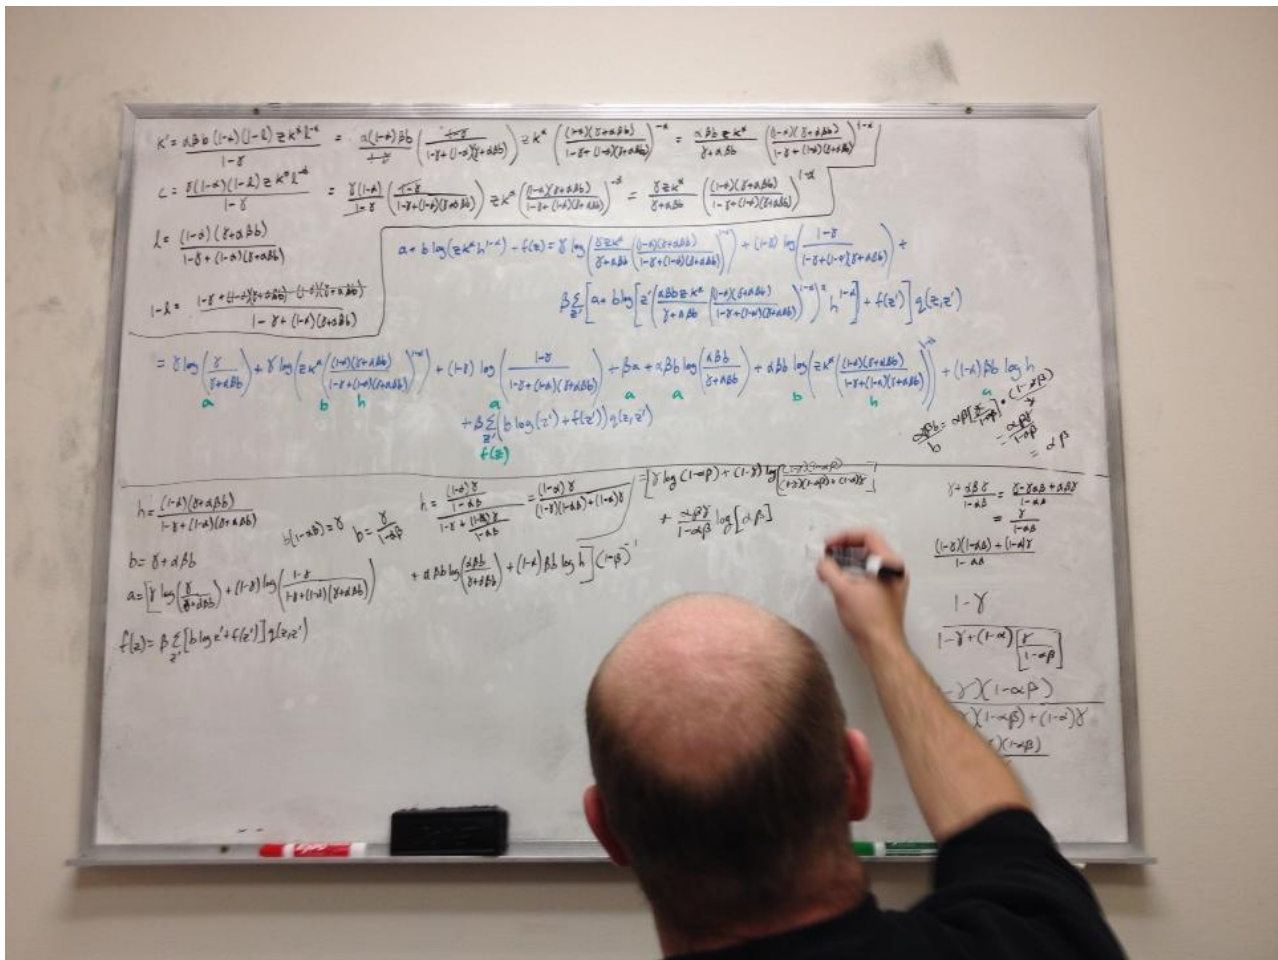 K' = αβb(1-α)(1-l)zk^α l^-α / 1-γ = α(1-α)βb / 1-γ (1-γ / 1-γ+(1-α)(γ+αβb)) zk^α ((1-α)(γ+αβb) / 1-γ+(1-α)(γ+αβb))^-α = αβb zk^α / γ+αβb ((1-α)(γ+αβb) / 1-γ+(1-α)(γ+αβb))^1-α
c = γ(1-α)(1-l)zk^α l^-α / 1-γ = γ(1-α) / 1-γ (1-γ / 1-γ+(1-α)(γ+αβb)) zk^α ((1-α)(γ+αβb) / 1-γ+(1-α)(γ+αβb))^-α = γzk^α / γ+αβb ((1-α)(γ+αβb) / 1-γ+(1-α)(γ+αβb))^1-α
l = (1-α)(γ+αβb) / 1-γ+(1-α)(γ+αβb)
1-l = 1-γ+(1-α)(γ+αβb)-(1-α)(γ+αβb) / 1-γ+(1-α)(γ+αβb)
a+b log(zk^α h^1-α)+f(z) = γ log(γzk^α / γ+αβb ((1-α)(γ+αβb) / 1-γ+(1-α)(γ+αβb))^1-α) + (1-γ) log(1-γ / 1-γ+(1-α)(γ+αβb)) +
β Σ_z' [a+b log[z'(αβbzk^α / γ+αβb ((1-α)(γ+αβb) / 1-γ+(1-α)(γ+αβb))^1-α)^α h^1-α]+f(z')] q(z,z')
= γ log(γ / γ+αβb) + γ log(zk^α ((1-α)(γ+αβb) / 1-γ+(1-α)(γ+αβb))^1-α) + (1-γ) log(1-γ / 1-γ+(1-α)(γ+αβb)) + βa + αβb log(αβb / γ+αβb) + αβb log(zk^α ((1-α)(γ+αβb) / 1-γ+(1-α)(γ+αβb))^1-α) + (1-α)βb log h
a b h a a a b h a
+ β Σ_z' (b log(z')+f(z')) q(z,z')
f(z)
αβb / b = αβ[γ / 1-αβ] · (1-αβ) / γ
= αβγ / 1-αβ
= αβ
h = (1-α)(γ+αβb) / 1-γ+(1-α)(γ+αβb)
b(1-αβ) = γ
b = γ / 1-αβ
h = (1-α)γ / 1-αβ / 1-γ+(1-α)γ / 1-αβ = (1-α)γ / (1-γ)(1-αβ)+(1-α)γ
b = γ+αβb
a = [γ log(γ / γ+αβb) + (1-γ) log(1-γ / 1-γ+(1-α)(γ+αβb)) + αβb log(αβb / γ+αβb) + (1-α)βb log h](1-β)^-1
f(z) = β Σ_z' [b log z'+f(z')] q(z,z')
= [γ log(1-αβ) + (1-γ) log[(1-γ)(1-αβ) / (1-γ)(1-αβ)+(1-α)γ]
+ αβγ / 1-αβ log[αβ]
γ + αβγ / 1-αβ = γ-γαβ+αβγ / 1-αβ
= γ / 1-αβ
(1-γ)(1-αβ)+(1-α)γ / 1-αβ
1-γ / 1-γ+(1-α)[γ / 1-αβ]
-γ)(1-αβ)
)(1-αβ)+(1-α)γ
)(1-αβ)